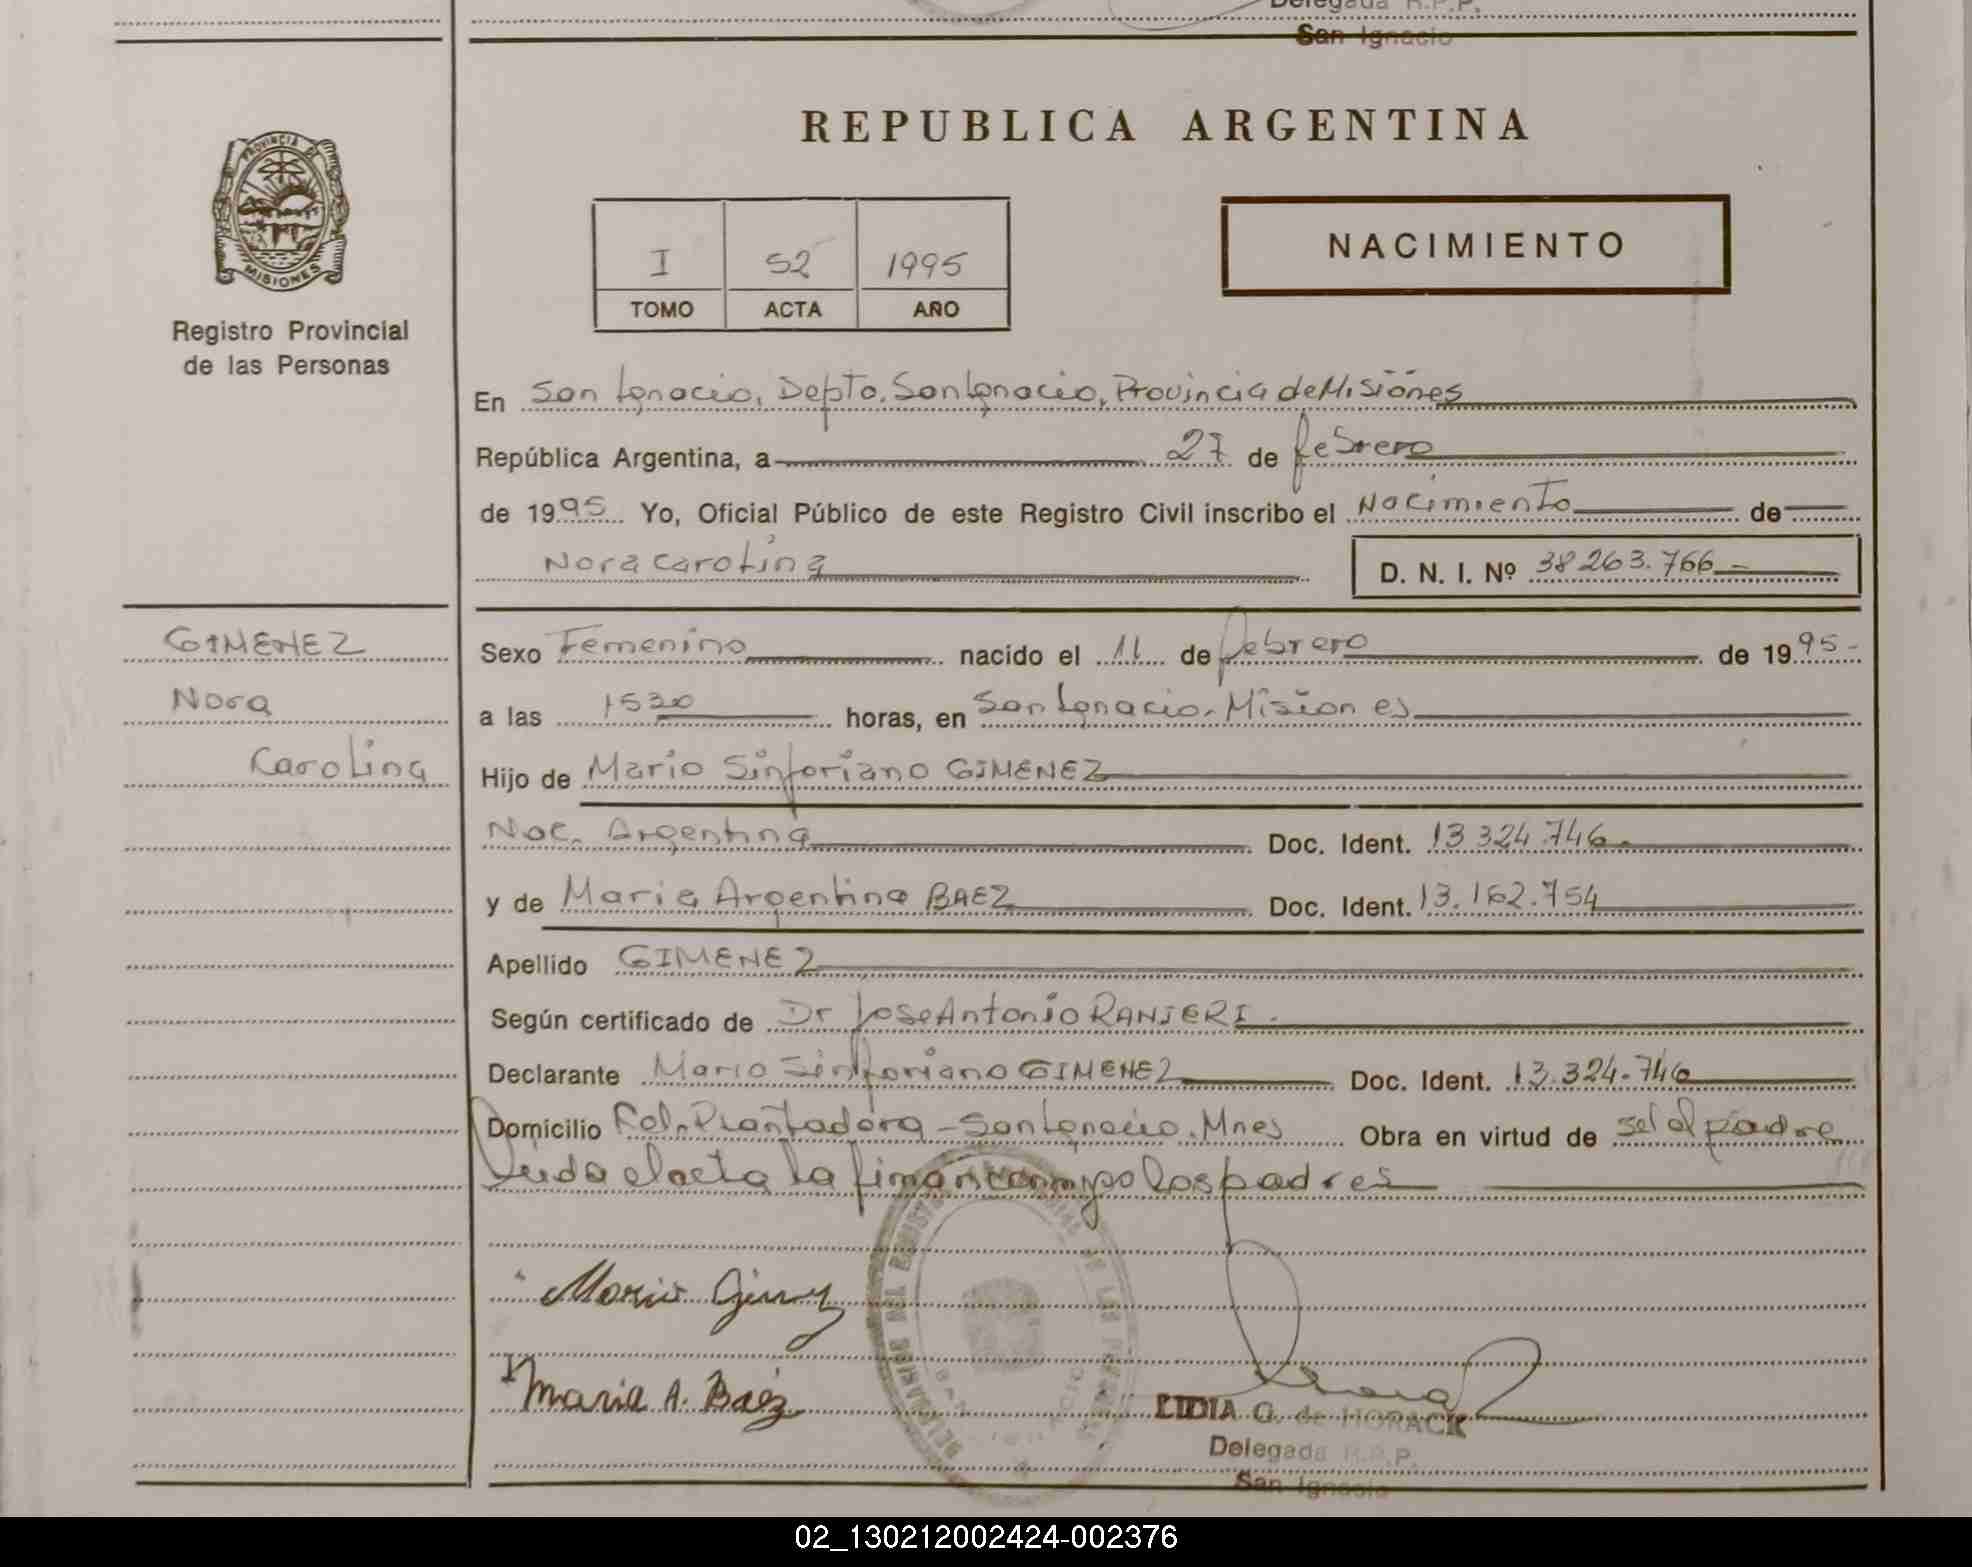 Delegada R.P.P.
San Ignacio
REPUBLICA ARGENTINA
PROVINCIA DE
MISIONES
Registro Provincial
de las Personas
I 52 1995
TOMO ACTA AÑO
NACIMIENTO
En San Ignacio, Depto. San Ignacio, Provincia de Misiones
República Argentina, a 27 de febrero
de 1995 Yo, Oficial Público de este Registro Civil inscribo el Nacimiento de
Nora Carolina D. N. I. Nº 38263.766
GIMENEZ
Nora
Carolina
Sexo Femenino nacido el 11 de febrero de 1995
a las 1530 horas, en San Ignacio. Misiones
Hijo de Mario Sinforiano GIMENEZ
Nac. Argentina Doc. Ident. 13.324.746
y de Maria Argentina BAEZ Doc. Ident. 13.162.754
Apellido GIMENEZ
Según certificado de Dr Jose Antonio RANIERI
Declarante Mario Sinforiano GIMENEZ Doc. Ident. 13.324.746
Domicilio Col. Plantadora - San Ignacio. Mnes Obra en virtud de ser el padre
Leida el acta la firman conmigo los padres
Mario Gimenez
Maria A. Baéz
LIDIA G. de HORACK
Delegada R.P.P.
San Ignacio
02_130212002424-002376